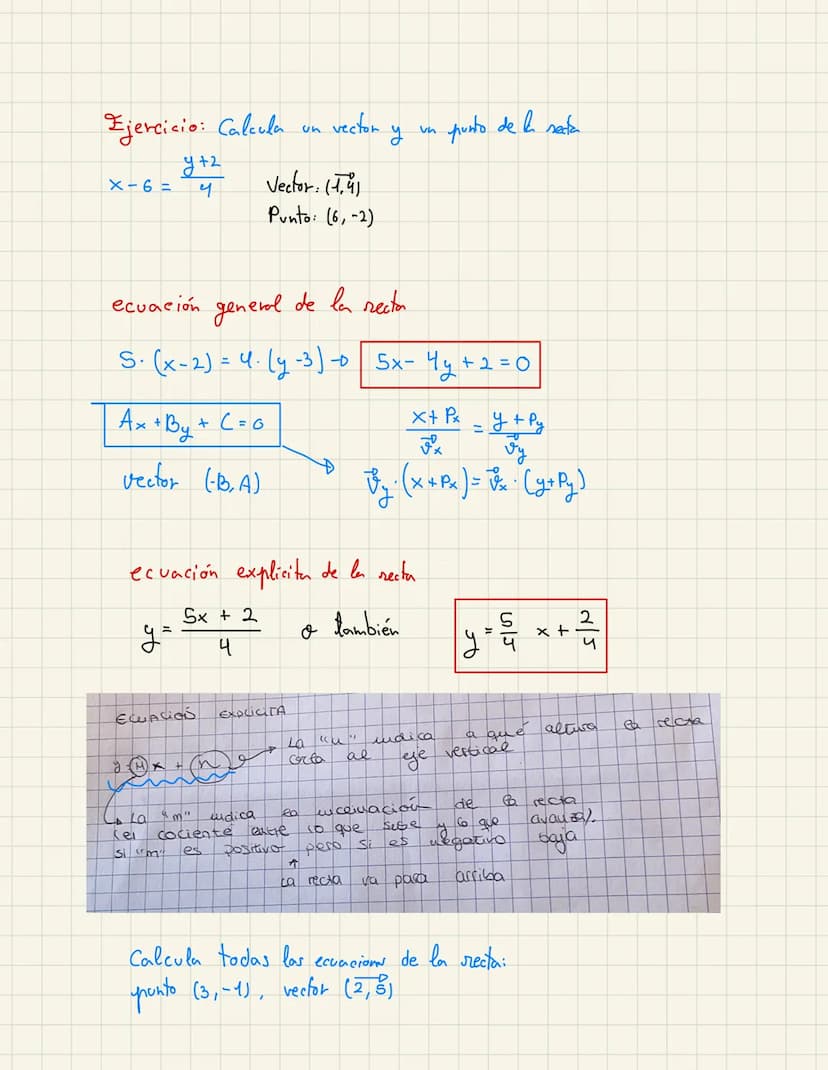 Ejercicio: Calcula un vector y un punto de la recta
x - 6 = (y+2)/4
Vector: (1,4)
Punto: (6, -2)
ecuación general de la recta
5·(x-2) = 4·(y-3) → 5x - 4y + 2 = 0
Ax + By + C = 0
vector (-B, A)
(x + Px)/v⃗x = (y + Py)/v⃗y
v⃗y·(x + Px) = v⃗x·(y + Py)
ecuación explicita de la recta
y = (5x + 2)/4 o también y = 5/4 x + 2/4
ECUACIÓN EXPLICITA
y = m x + n
La "n" indica a qué altura la recta
corta al eje vertical
La "m" indica la inclinación de la recta
(el cociente entre lo que sube y lo que avanza).
si "m" es positivo pero si es negativo baja
↑
La recta va para arriba
Calcula todas las ecuaciones de la recta:
punto (3, -1), vector (2, 5)